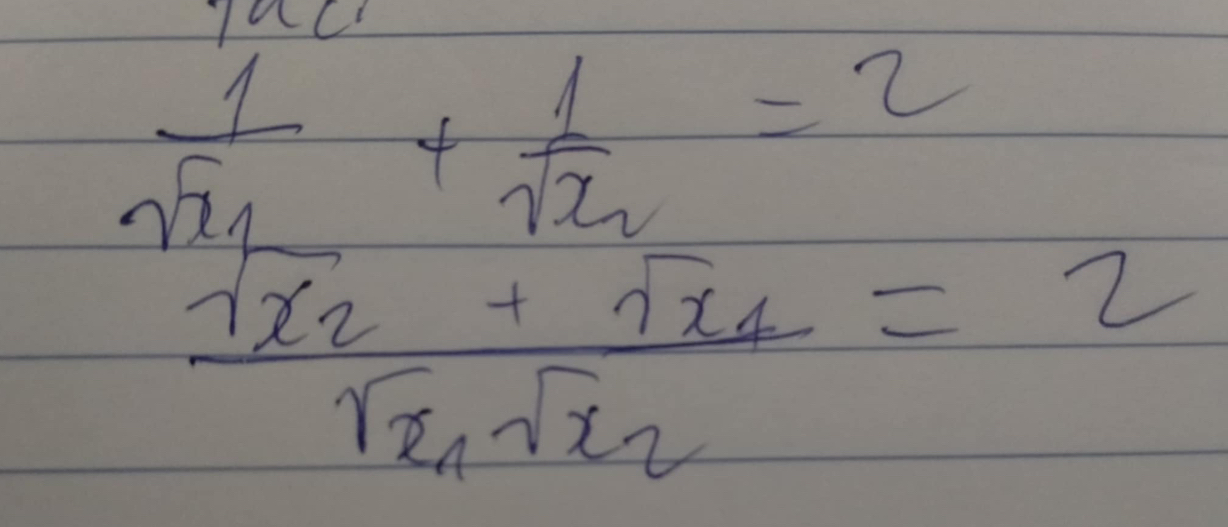 1/√x₁ + 1/√x₂ = 2
(√x₂ + √x₁)/(√x₁ √x₂) = 2